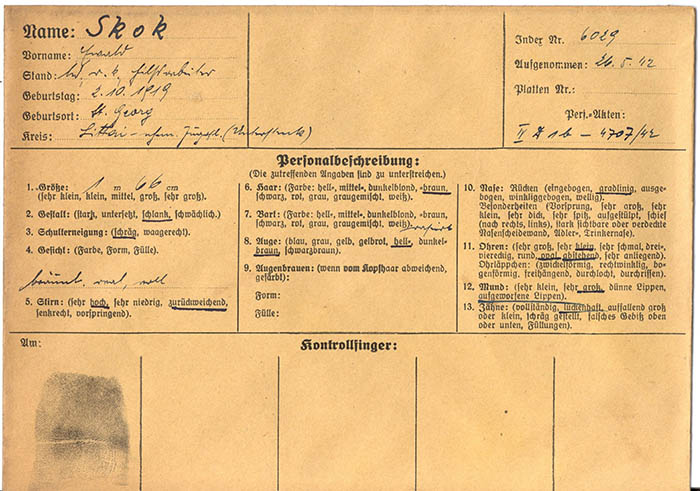 Name: Skok
Vorname: Ewald
Stand: led, r. k., Hilfsarbeiter
Geburtstag: 2.10.1919
Geburtsort: St. Georg
Kreis: Littai - ehem. Jugosl. (Untersteierm.)
Index Nr. 6029
Aufgenommen: 26.5.42
Platten Nr.:
Pers.-Akten:
II D 1b - 4707/42
Personalbeschreibung:
(Die zutreffenden Angaben sind zu unterstreichen.)
1. Größe: 1 m 66 cm
(sehr klein, klein, mittel, groß, sehr groß).
2. Gestalt: (stark, untersetzt, schlank, schwächlich).
3. Schulterneigung: (schräg, waagerecht).
4. Gesicht: (Farbe, Form, Fülle).
bräunl., oval, voll
5. Stirn: (sehr hoch, sehr niedrig, zurückweichend,
senkrecht, vorspringend).
6. Haar: (Farbe: hell-, mittel-, dunkelblond, -braun,
schwarz, rot, grau, graugemischt, weiß).
7. Bart: (Farbe: hell-, mittel-, dunkelblond, -braun,
schwarz, rot, grau, graugemischt, weiß). rasiert
8. Auge: (blau, grau, gelb, gelbrot, hell-, dunkel-
braun, schwarzbraun).
9. Augenbrauen: (wenn vom Kopfhaar abweichend,
gefärbt):
Form:
Fülle:
10. Nase: Rücken (eingebogen, gradlinig, ausge-
bogen, winkliggebogen, wellig).
Besonderheiten (Vorsprung, sehr groß, sehr
klein, sehr dick, sehr spitz, aufgestülpt, schief
(nach rechts, links), stark sichtbare oder verdeckte
Nasenscheidewand, Adler-, Trinkernase).
11. Ohren: (sehr groß, sehr klein, sehr schmal, drei-,
viereckig, rund, oval, abstehend, sehr anliegend).
Ohrläppchen: (zwickelförmig, rechtwinklig, bo-
genförmig, freihängend, durchlocht, durchrissen).
12. Mund: (sehr klein, sehr groß, dünne Lippen,
aufgeworfene Lippen).
13. Zähne: (vollständig, lückenhaft, auffallend groß
oder klein, schräg gestellt, falsches Gebiß oben
oder unten, Füllungen).
Am:
Kontrollfinger: